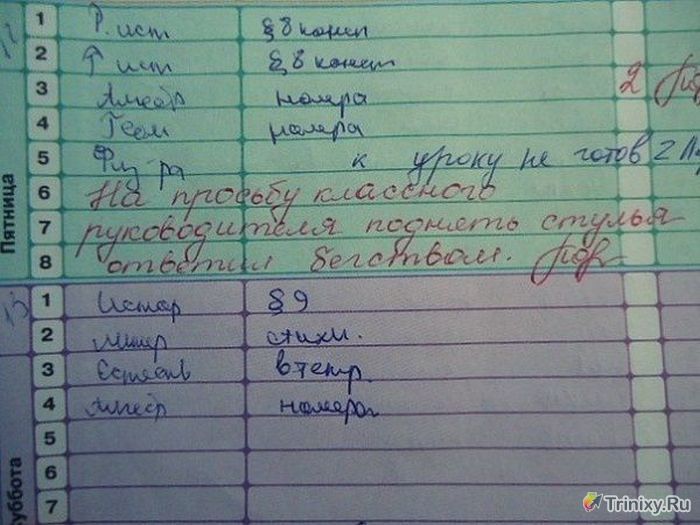 1 Р. ист § 8 конец
2 Р ист § 8 конец
3 Алгебр номера 2
4 Геом номера
5 Физ ра к уроку не готов 2
Пятница
6 На просьбу классного
7 руководителя поднять стулья
8 ответил бегством.
1 Истор § 9
2 Литер стихи.
3 Естеств в тетр.
4 Алгебр номера
5
6
7
уббота
Trinixy.Ru